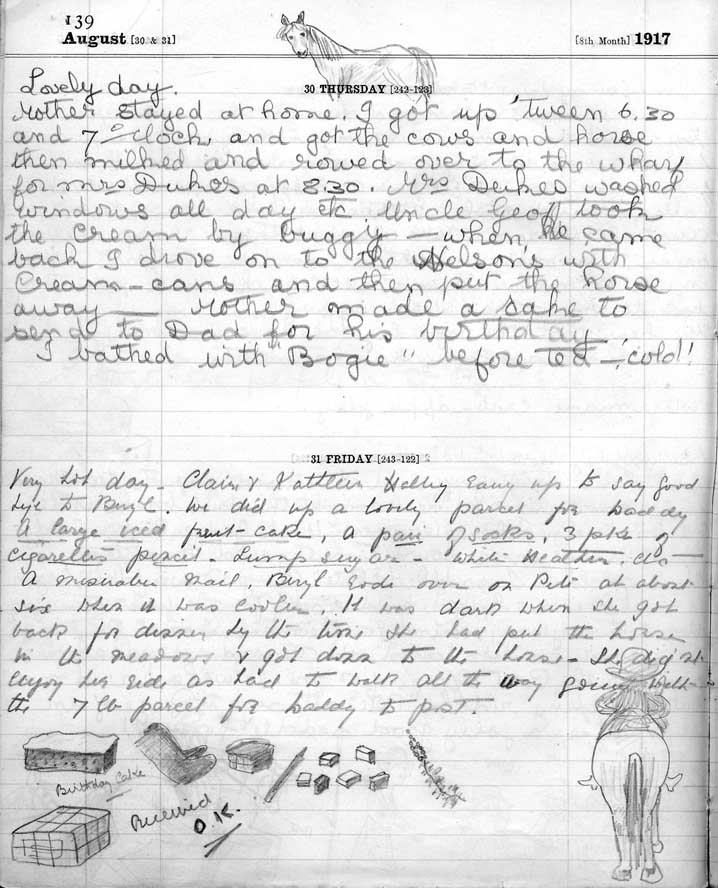 139
August [30 & 31] [8th Month] 1917
30 THURSDAY [242-123]
Lovely day.
Mother stayed at home. I got up 'tween 6.30
and 7 o'clock, and got the cows and horse
then milked and rowed over to the wharf
for Mrs Dukes at 8.30. Mrs Deukes washed
windows all day etc. Uncle Geoff took
the cream by buggy — when he came
back I drove on to the Nelsons with
Cream-cans and then put the horse
away — Mother made a cake to
send to Dad for his birthday
I bathed with "Bogie" before tea — 'cold!
31 FRIDAY [243-122]
Very hot day - Claire & Kathleen up to say good
bye to Beryl. We did up a lovely parcel for Daddy
A large iced fruit-cake, a pair of socks, 3 pkts of
cigarettes pencil - Lump sugar - White Heather. etc —
A miserable mail, Beryl rode over on Pete at about
six when it was cooler. It was dark when she got
back for dinner by the time she had put the horse
in the meadows & got down to the house - She didn't
enjoy her ride as had to walk all the way going with
the 7 lb parcel for Daddy to post.
Birthday Cake
Received
O.K.